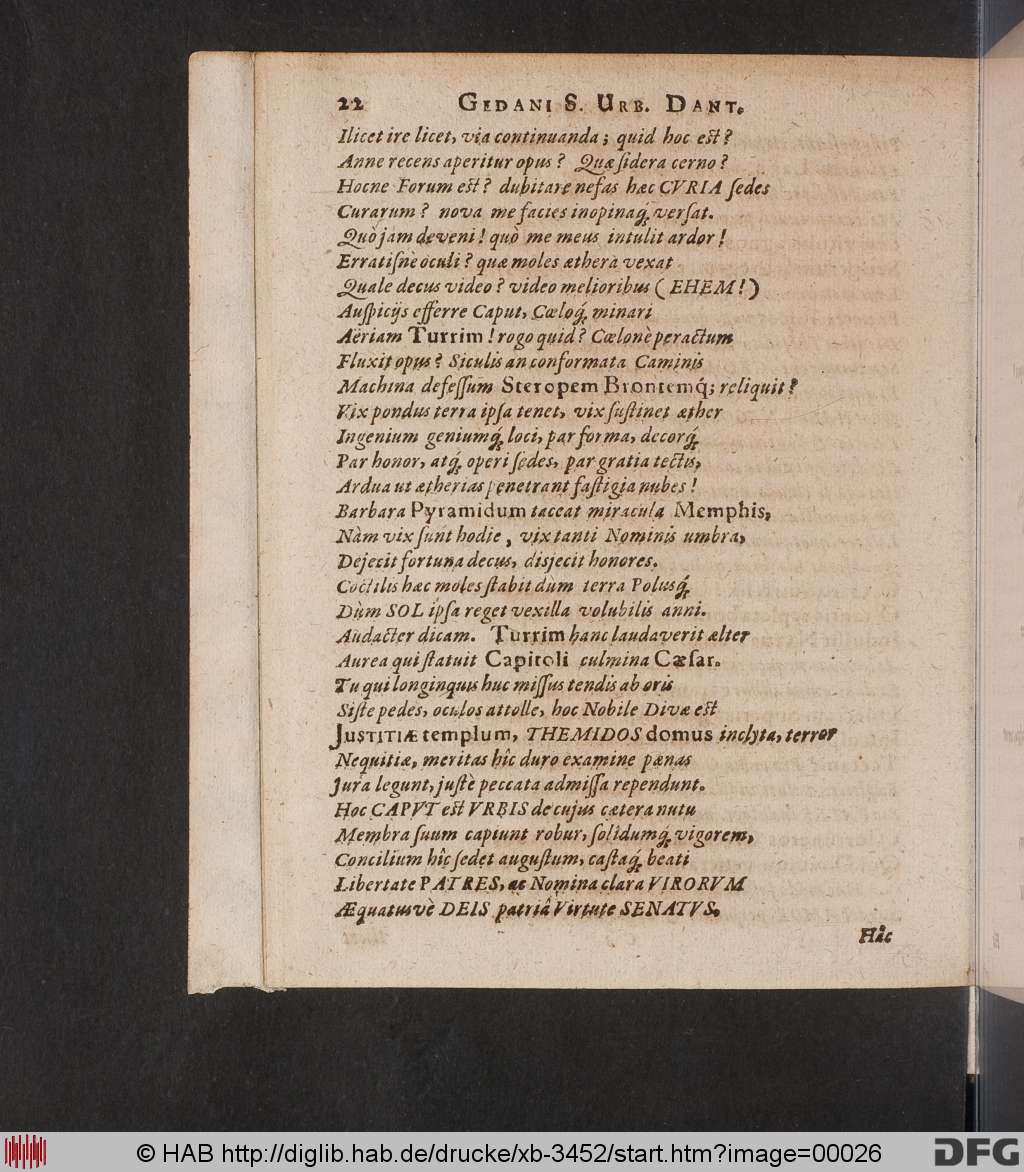 22 GEDANI S. URB. DANT.
Ilicet ire licet, via continuanda; quid hoc est?
Anne recens aperitur opus? Quæ sidera cerno?
Hocne Forum est? dubitare nefas hæc CVRIA sedes
Curarum? nova me facies inopinaq́; versat.
Quò jam deveni! quò me meus intulit ardor!
Erratisnè oculi? quæ moles æthera vexat
Quale decus video? video melioribus (EHEM!)
Auspicijs efferre Caput, Cœloq́; minari
Aëriam Turrim! rogo quid? Cœlonè peractum
Fluxit opus? Siculis an conformata Caminis
Machina defessum Steropem Brontemq́; reliquit?
Vix pondus terra ipsa tenet, vix sustinet æther
Ingenium geniumq́; loci, par forma, decorq́;
Par honor, atq́; operi sedes, par gratia tectis,
Ardua ut ætherias penetrant fastigia nubes!
Barbara Pyramidum taceat miracula Memphis,
Nàm vix sunt hodie, vix tanti Nominis umbra,
Dejecit fortuna decus, disjecit honores.
Coctilis hæc moles stabit dùm terra Polusq́;
Dùm SOL ipsa reget vexilla volubilis anni.
Audacter dicam. Turrim hanc laudaverit alter
Aurea qui statuit Capitoli culmina Cæsar.
Tu qui longinquis huc missus tendis ab oris
Siste pedes, oculos attolle, hoc Nobile Divæ est
JUSTITIÆ templum, THEMIDOS domus inclyta, terror
Nequitiæ, meritas hîc duro examine pœnas
Jura legunt, justè peccata admissa rependunt.
Hoc CAPVT est VRBIS de cujus cætera nutu
Membra suum capiunt robur, solidumq́; vigorem,
Concilium hîc sedet augustum, castaq́; beati
Libertate PATRES, ac Nomina clara VIRORVM
Æquatusvè DEIS patriâ Virtute SENATVS.
Hâc
© HAB http://diglib.hab.de/drucke/xb-3452/start.htm?image=00026
DFG